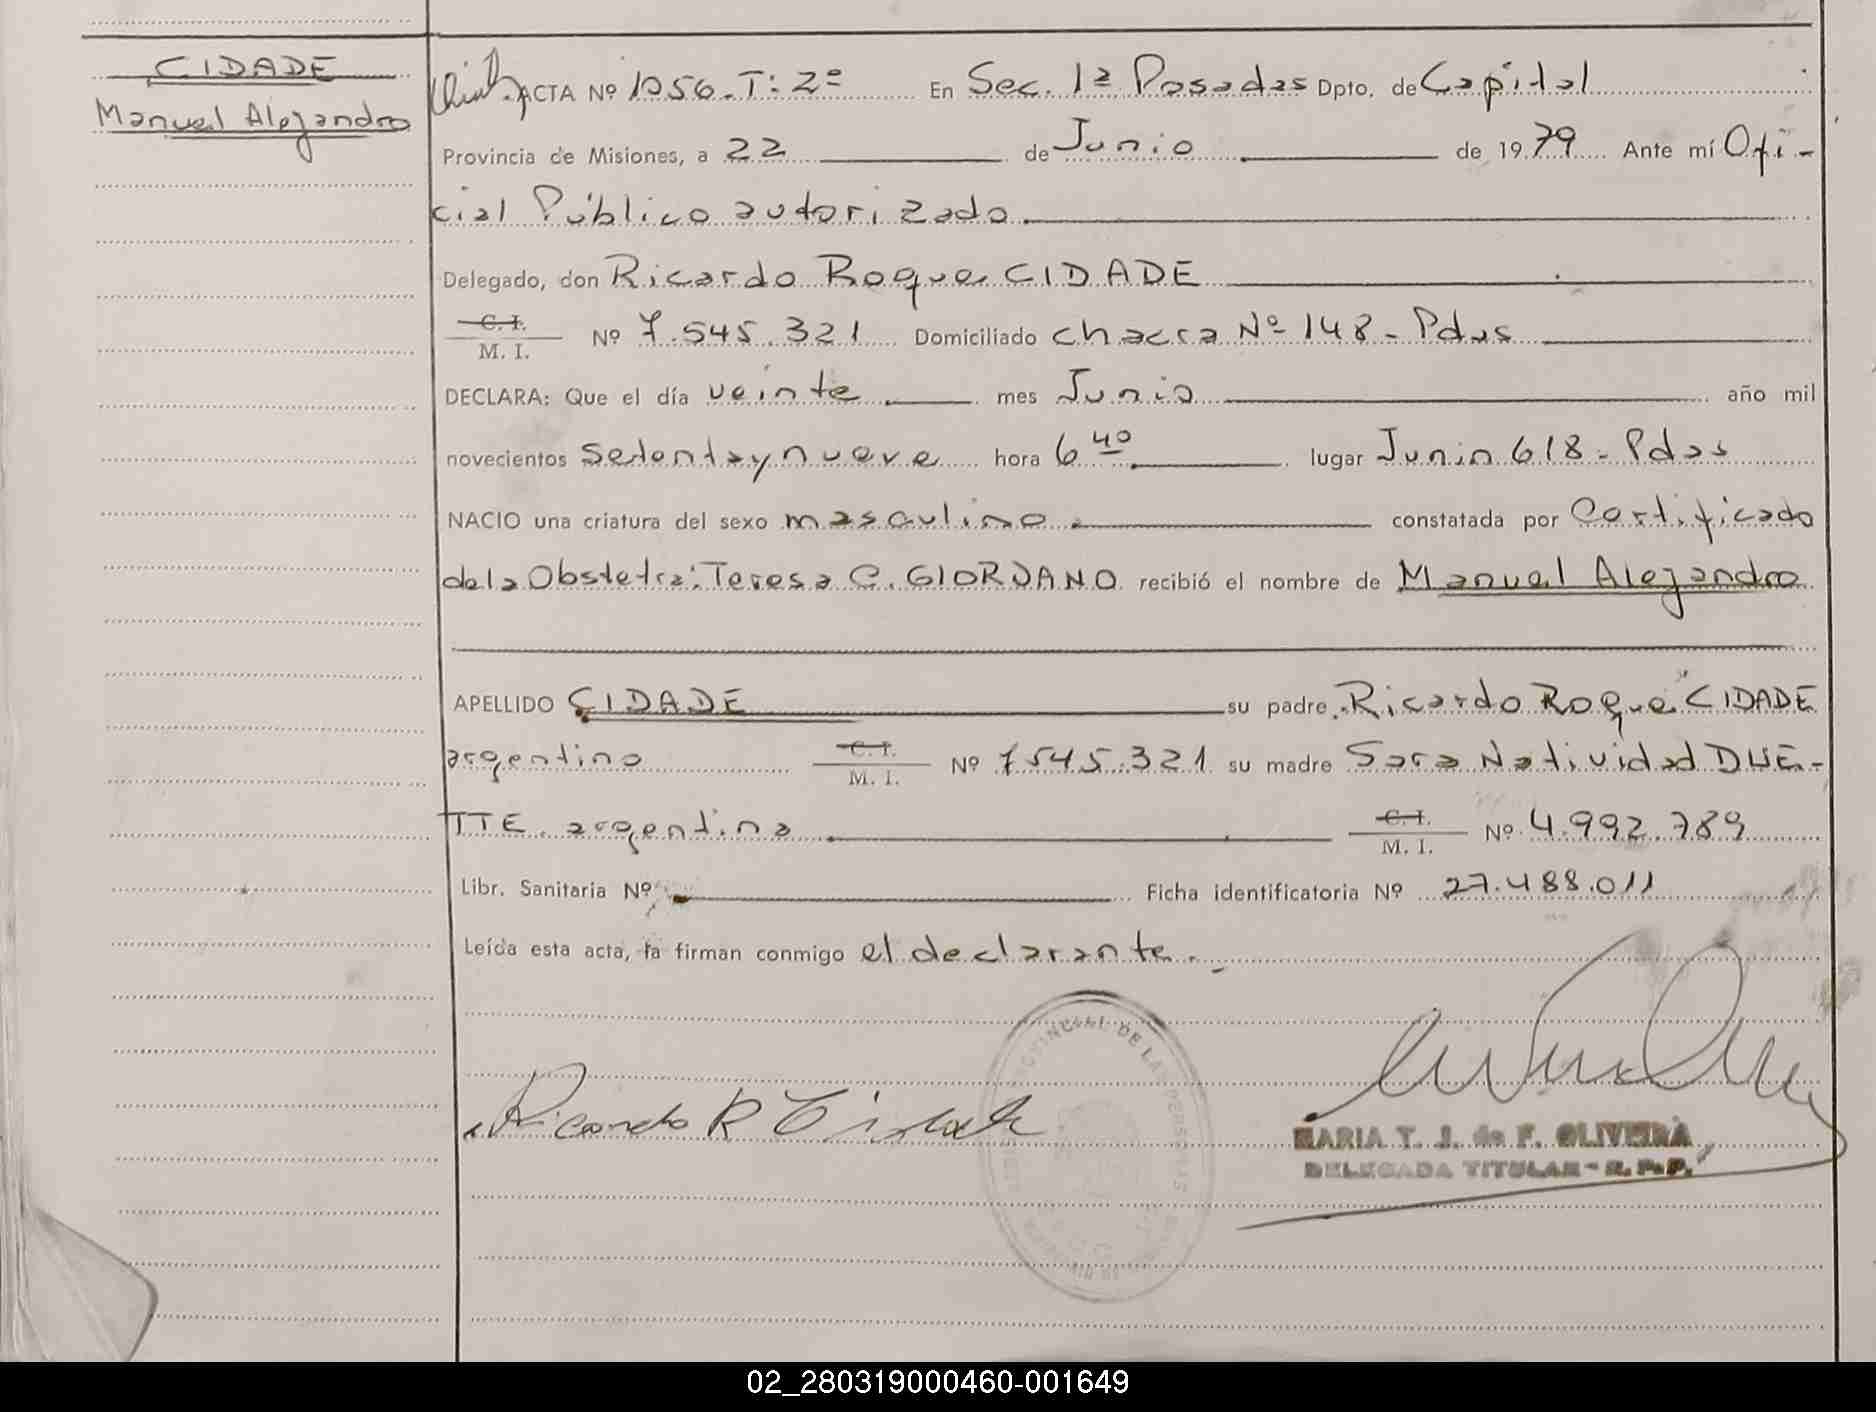 CIDADE
Manuel Alejandro
ACTA Nº 1056. T: 2º En Sec. 1ª Posadas Dpto. de Capital
Provincia de Misiones, a 22 de Junio de 1979 Ante mí Ofi-
cial Público autorizado
Delegado, don Ricardo Roque CIDADE
C. I. / M. I. Nº 7.545.321 Domiciliado chacra Nº 148 - Pdas
DECLARA: Que el día veinte mes Junio año mil
novecientos setenta y nueve hora 6 40 lugar Junin 618 - Pdas
NACIO una criatura del sexo masculino constatada por Certificado
de la Obstetra: Teresa C. GIORDANO recibió el nombre de Manuel Alejandro
APELLIDO CIDADE su padre Ricardo Roque CIDADE
argentino C. I. / M. I. Nº 7545.321 su madre Sara Natividad DUE-
TTE. argentina C. I. / M. I. Nº 4.992.789
Libr. Sanitaria Nº Ficha identificatoria Nº 27.488.011
Leída esta acta, la firman conmigo el declarante.-
Ricardo R Cidade
MARIA T. J. de F. OLIVEIRA
DELEGADA TITULAR - R. P. P.
02_280319000460-001649